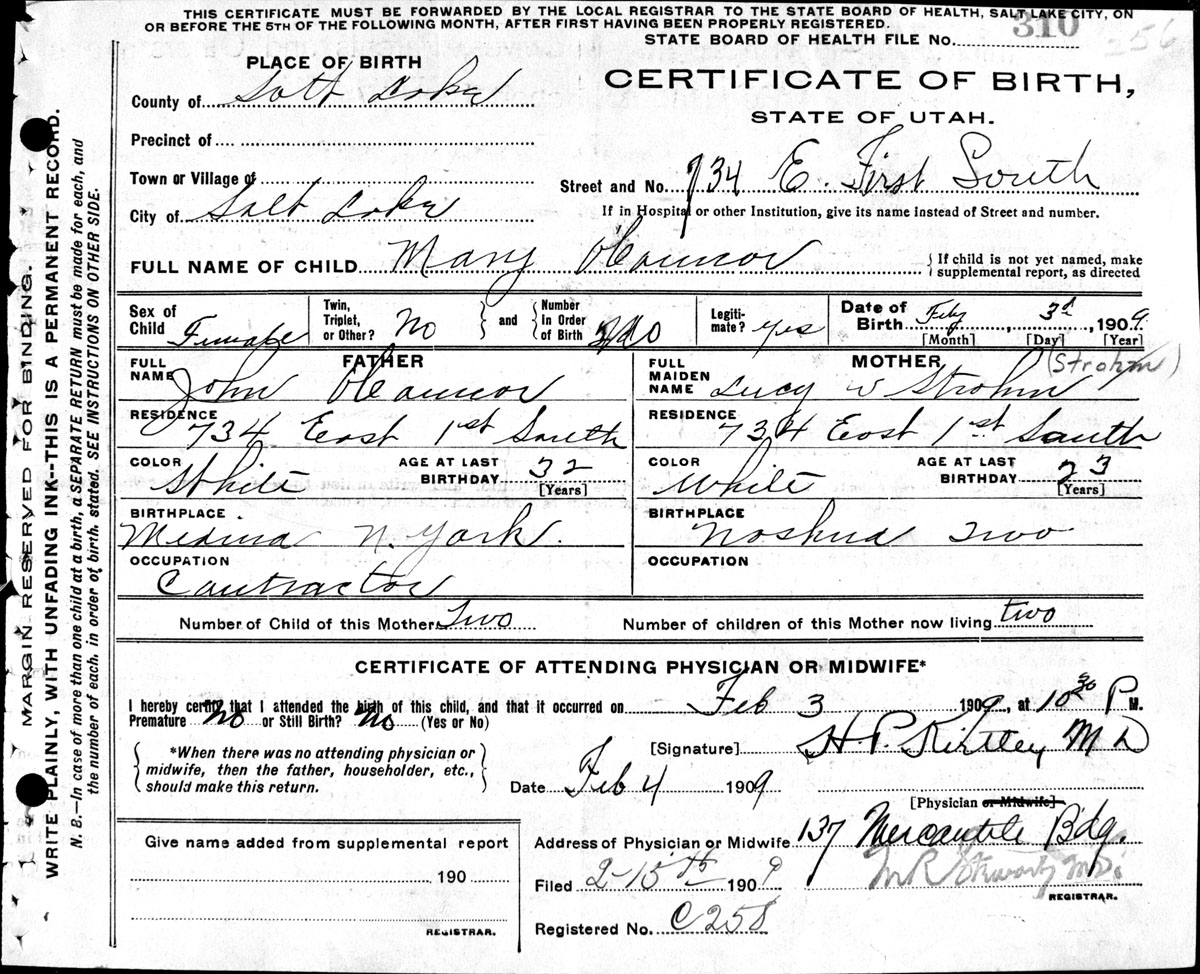 THIS CERTIFICATE MUST BE FORWARDED BY THE LOCAL REGISTRAR TO THE STATE BOARD OF HEALTH, SALT LAKE CITY, ON
OR BEFORE THE 5TH OF THE FOLLOWING MONTH, AFTER FIRST HAVING BEEN PROPERLY REGISTERED.
STATE BOARD OF HEALTH FILE No. 310 256
PLACE OF BIRTH
CERTIFICATE OF BIRTH,
STATE OF UTAH.
County of Salt Lake
Precinct of
Town or Village of
Street and No. 734 E. First South
City of Salt Lake
If in Hospital or other Institution, give its name instead of Street and number.
FULL NAME OF CHILD Mary O'Connor
{If child is not yet named, make
supplemental report, as directed
Sex of Child Female
Twin, Triplet, or Other? No
and Number In Order of Birth
Legiti-mate? yes
Date of Birth Feby, 3d, 1909.
[Month] [Day] [Year]
FATHER
FULL NAME John O'Connor
MOTHER (Strohm)
FULL MAIDEN NAME Lucy W Strohm
RESIDENCE 734 East 1st South
RESIDENCE 734 East 1st South
COLOR White AGE AT LAST BIRTHDAY 32 [Years]
COLOR White AGE AT LAST BIRTHDAY 23 [Years]
BIRTHPLACE Medina N. York.
BIRTHPLACE
OCCUPATION Contractor
OCCUPATION
Number of Child of this Mother Two
Number of children of this Mother now living two
CERTIFICATE OF ATTENDING PHYSICIAN OR MIDWIFE*
I hereby certify that I attended the birth of this child, and that it occurred on Feb 3 1909, at 10 30 P M.
Premature No or Still Birth? No (Yes or No)
*When there was no attending physician or
midwife, then the father, householder, etc.,
should make this return.
[Signature] H. P. Kirtley M D
Date Feb 4 1909
[Physician or Midwife]
Give name added from supplemental report
190
REGISTRAR.
Address of Physician or Midwife 137 Mercantile Bdg.
Filed 2-15th 1909
M R Stewart MD.
REGISTRAR.
Registered No. C258
MARGIN RESERVED FOR BINDING.
WRITE PLAINLY, WITH UNFADING INK--THIS IS A PERMANENT RECORD.
N. B.—In case of more than one child at a birth, a SEPARATE RETURN must be made for each, and
the number of each, in order of birth, stated. SEE INSTRUCTIONS ON OTHER SIDE.